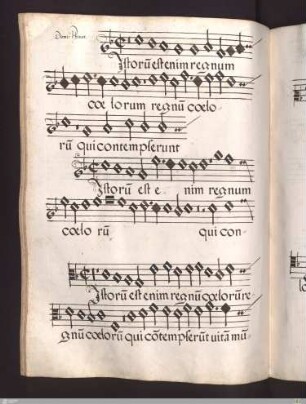 Istorū est enim regnum
cœlorum regnū cœlo-
rū qui contempserunt
Istorū est e- nim regnum
cœlo rū qui con-
Istorū est enim regnū cœlorū re-
gnū cœlorū qui cōtempserūt uitā mū-